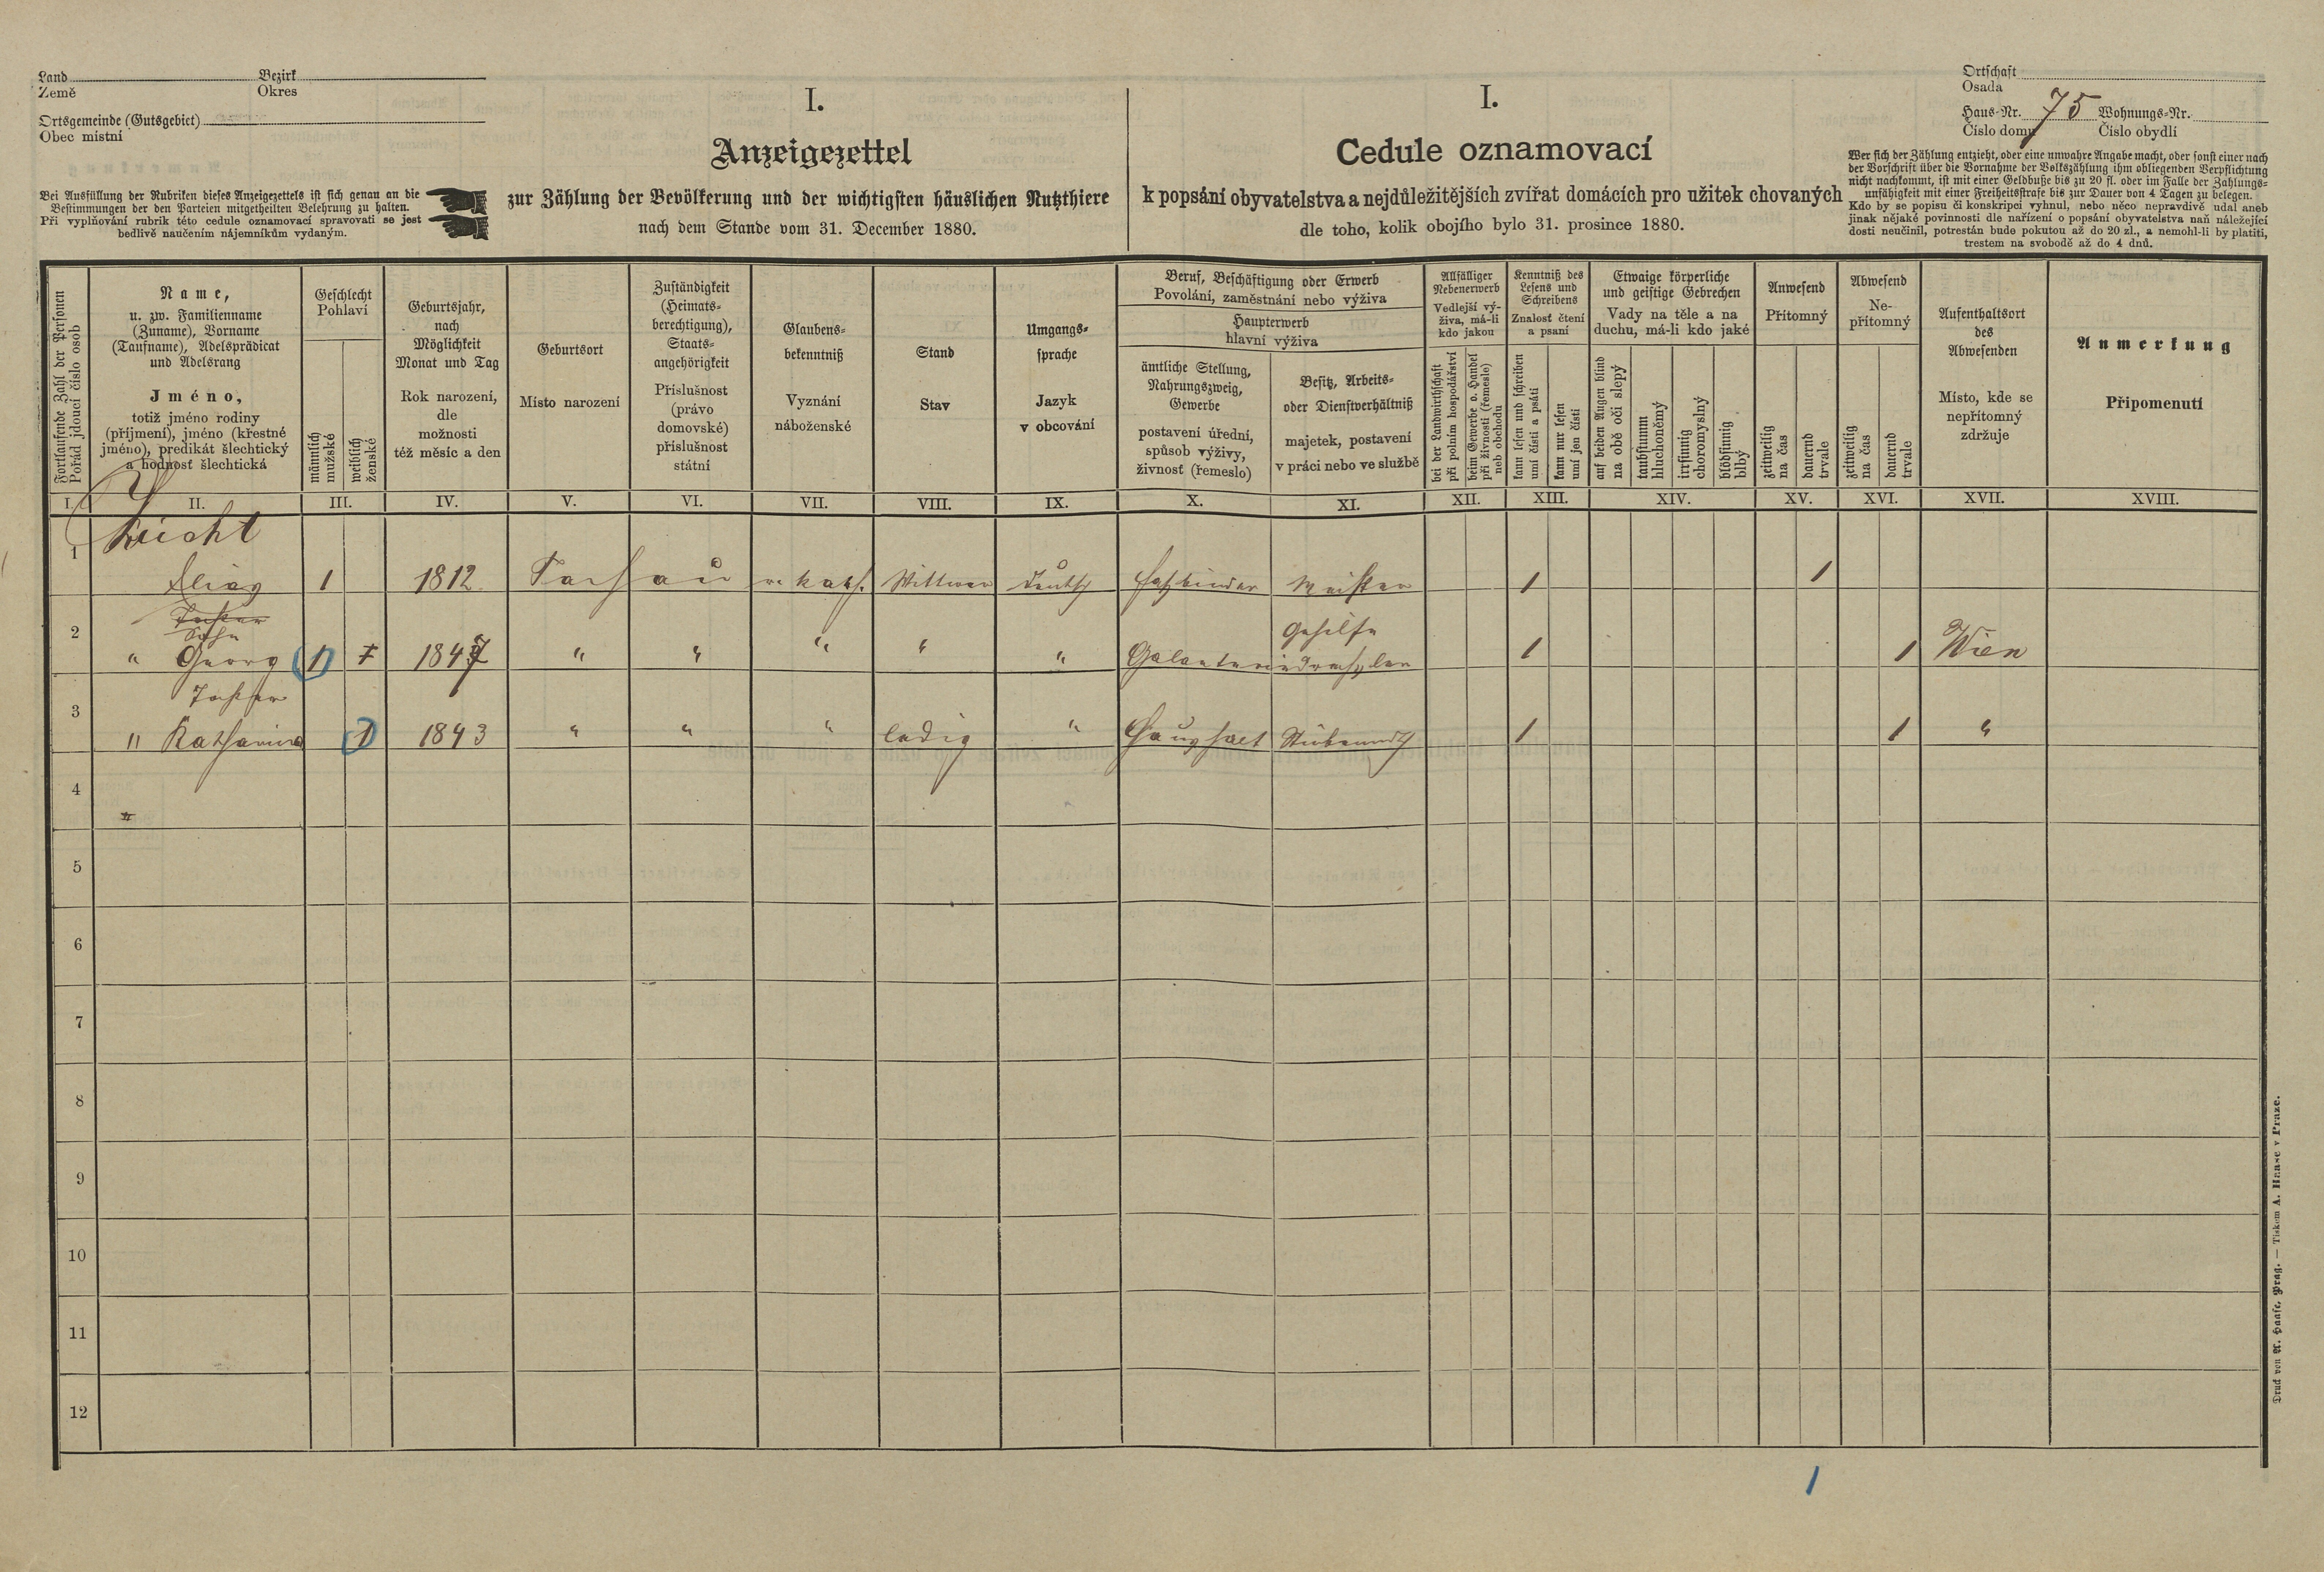 Land Bezirk
Země Okres
Ortsgemeinde (Gutsgebiet)
Obec místní
Bei Ausfüllung der Rubriken dieses Anzeigezettels ist sich genau an die
Bestimmungen der den Parteien mitgetheilten Belehrung zu halten.
Při vyplňování rubrik této cedule oznamovací spravovati se jest
bedlivě naučením nájemníkům vydaným.
I.
Anzeigezettel
zur Zählung der Bevölkerung und der wichtigsten häuslichen Nutzthiere
nach dem Stande vom 31. December 1880.
I.
Cedule oznamovací
k popsání obyvatelstva a nejdůležitějších zvířat domácích pro užitek chovaných
dle toho, kolik obojího bylo 31. prosince 1880.
Ortschaft
Osada
Haus-Nr. 75 Wohnungs-Nr.
Číslo domu Číslo obydlí
Wer sich der Zählung entzieht, oder eine unwahre Angabe macht, oder sonst einer nach
der Vorschrift über die Vornahme der Volkszählung ihm obliegenden Verpflichtung
nicht nachkommt, ist mit einer Geldbuße bis zu 20 fl. oder im Falle der Zahlungs-
unfähigkeit mit einer Freiheitsstrafe bis zur Dauer von 4 Tagen zu belegen.
Kdo by se popisu či konskripci vyhnul, nebo něco nepravdivě udal aneb
jinak nějaké povinnosti dle nařízení o popsání obyvatelstva naň náležející
dosti neučinil, potrestán bude pokutou až do 20 zl., a nemohl-li by platiti,
trestem na svobodě až do 4 dnů.
Fortlaufende Zahl der Personen
Pořád jdoucí číslo osob
Name,
u. zw. Familienname
(Zuname), Vorname
(Taufname), Adelsprädicat
und Adelsrang
Jméno,
totiž jméno rodiny
(příjmení), jméno (křestné
jméno), predikát šlechtický
a hodnosť šlechtická
Geschlecht
Pohlaví
männlich
mužské
weiblich
ženské
Geburtsjahr,
nach
Möglichkeit
Monat und Tag
Rok narození,
dle
možnosti
též měsíc a den
Geburtsort
Místo narození
Zuständigkeit
(Heimats-
berechtigung),
Staats-
angehörigkeit
Příslušnost
(právo
domovské)
příslušnost
státní
Glaubens-
bekenntniß
Vyznání
náboženské
Stand
Stav
Umgangs-
sprache
Jazyk
v obcování
Beruf, Beschäftigung oder Erwerb
Povolání, zaměstnání nebo výživa
Haupterwerb
hlavní výživa
ämtliche Stellung,
Nahrungszweig,
Gewerbe
postavení úřední,
spůsob výživy,
živnosť (řemeslo)
Besitz, Arbeits-
oder Dienstverhältniß
majetek, postavení
v práci nebo ve službě
Allfälliger
Nebenerwerb
Vedlejší vý-
živa, má-li
kdo jakou
bei der Landwirthschaft
při polním hospodářství
beim Gewerbe o. Handel
při živnosti (řemeslo)
neb obchodu
Kenntniß des
Lesens und
Schreibens
Znalosť čtení
a psaní
kann lesen und schreiben
umí čísti a psáti
kann nur lesen
umí jen čísti
Etwaige körperliche
und geistige Gebrechen
Vady na těle a na
duchu, má-li kdo jaké
auf beiden Augen blind
na obě oči slepý
taubstumm
hluchoněmý
irrsinnig
choromyslný
blödsinnig
blbý
Anwesend
Přítomný
zeitweilig
na čas
dauernd
trvale
Abwesend
Ne-
přítomný
zeitweilig
na čas
dauernd
trvale
Aufenthaltsort
des
Abwesenden
Místo, kde se
nepřítomný
zdržuje
Anmerkung
Připomenutí
I. II. III. IV. V. VI. VII. VIII. IX. X. XI. XII. XIII. XIV. XV. XVI. XVII. XVIII.
1 Licht
Elias 1 1812 Tachau r. kath. Wittwer Deutsch Faßbinder Meister 1 1
2 Tochter
Sohn
" Georg 1 1 1847 " " " " " Galanteriedrechsler Gehilfe 1 1 Wien
3 Tochter
" Katharina 1 1843 " " " ledig " Haushalt 1 1 "
4 "
5
6
7
8
9
10
11
12
1
Druck von A. Haase, Prag. — Tiskem A. Haase v Praze.